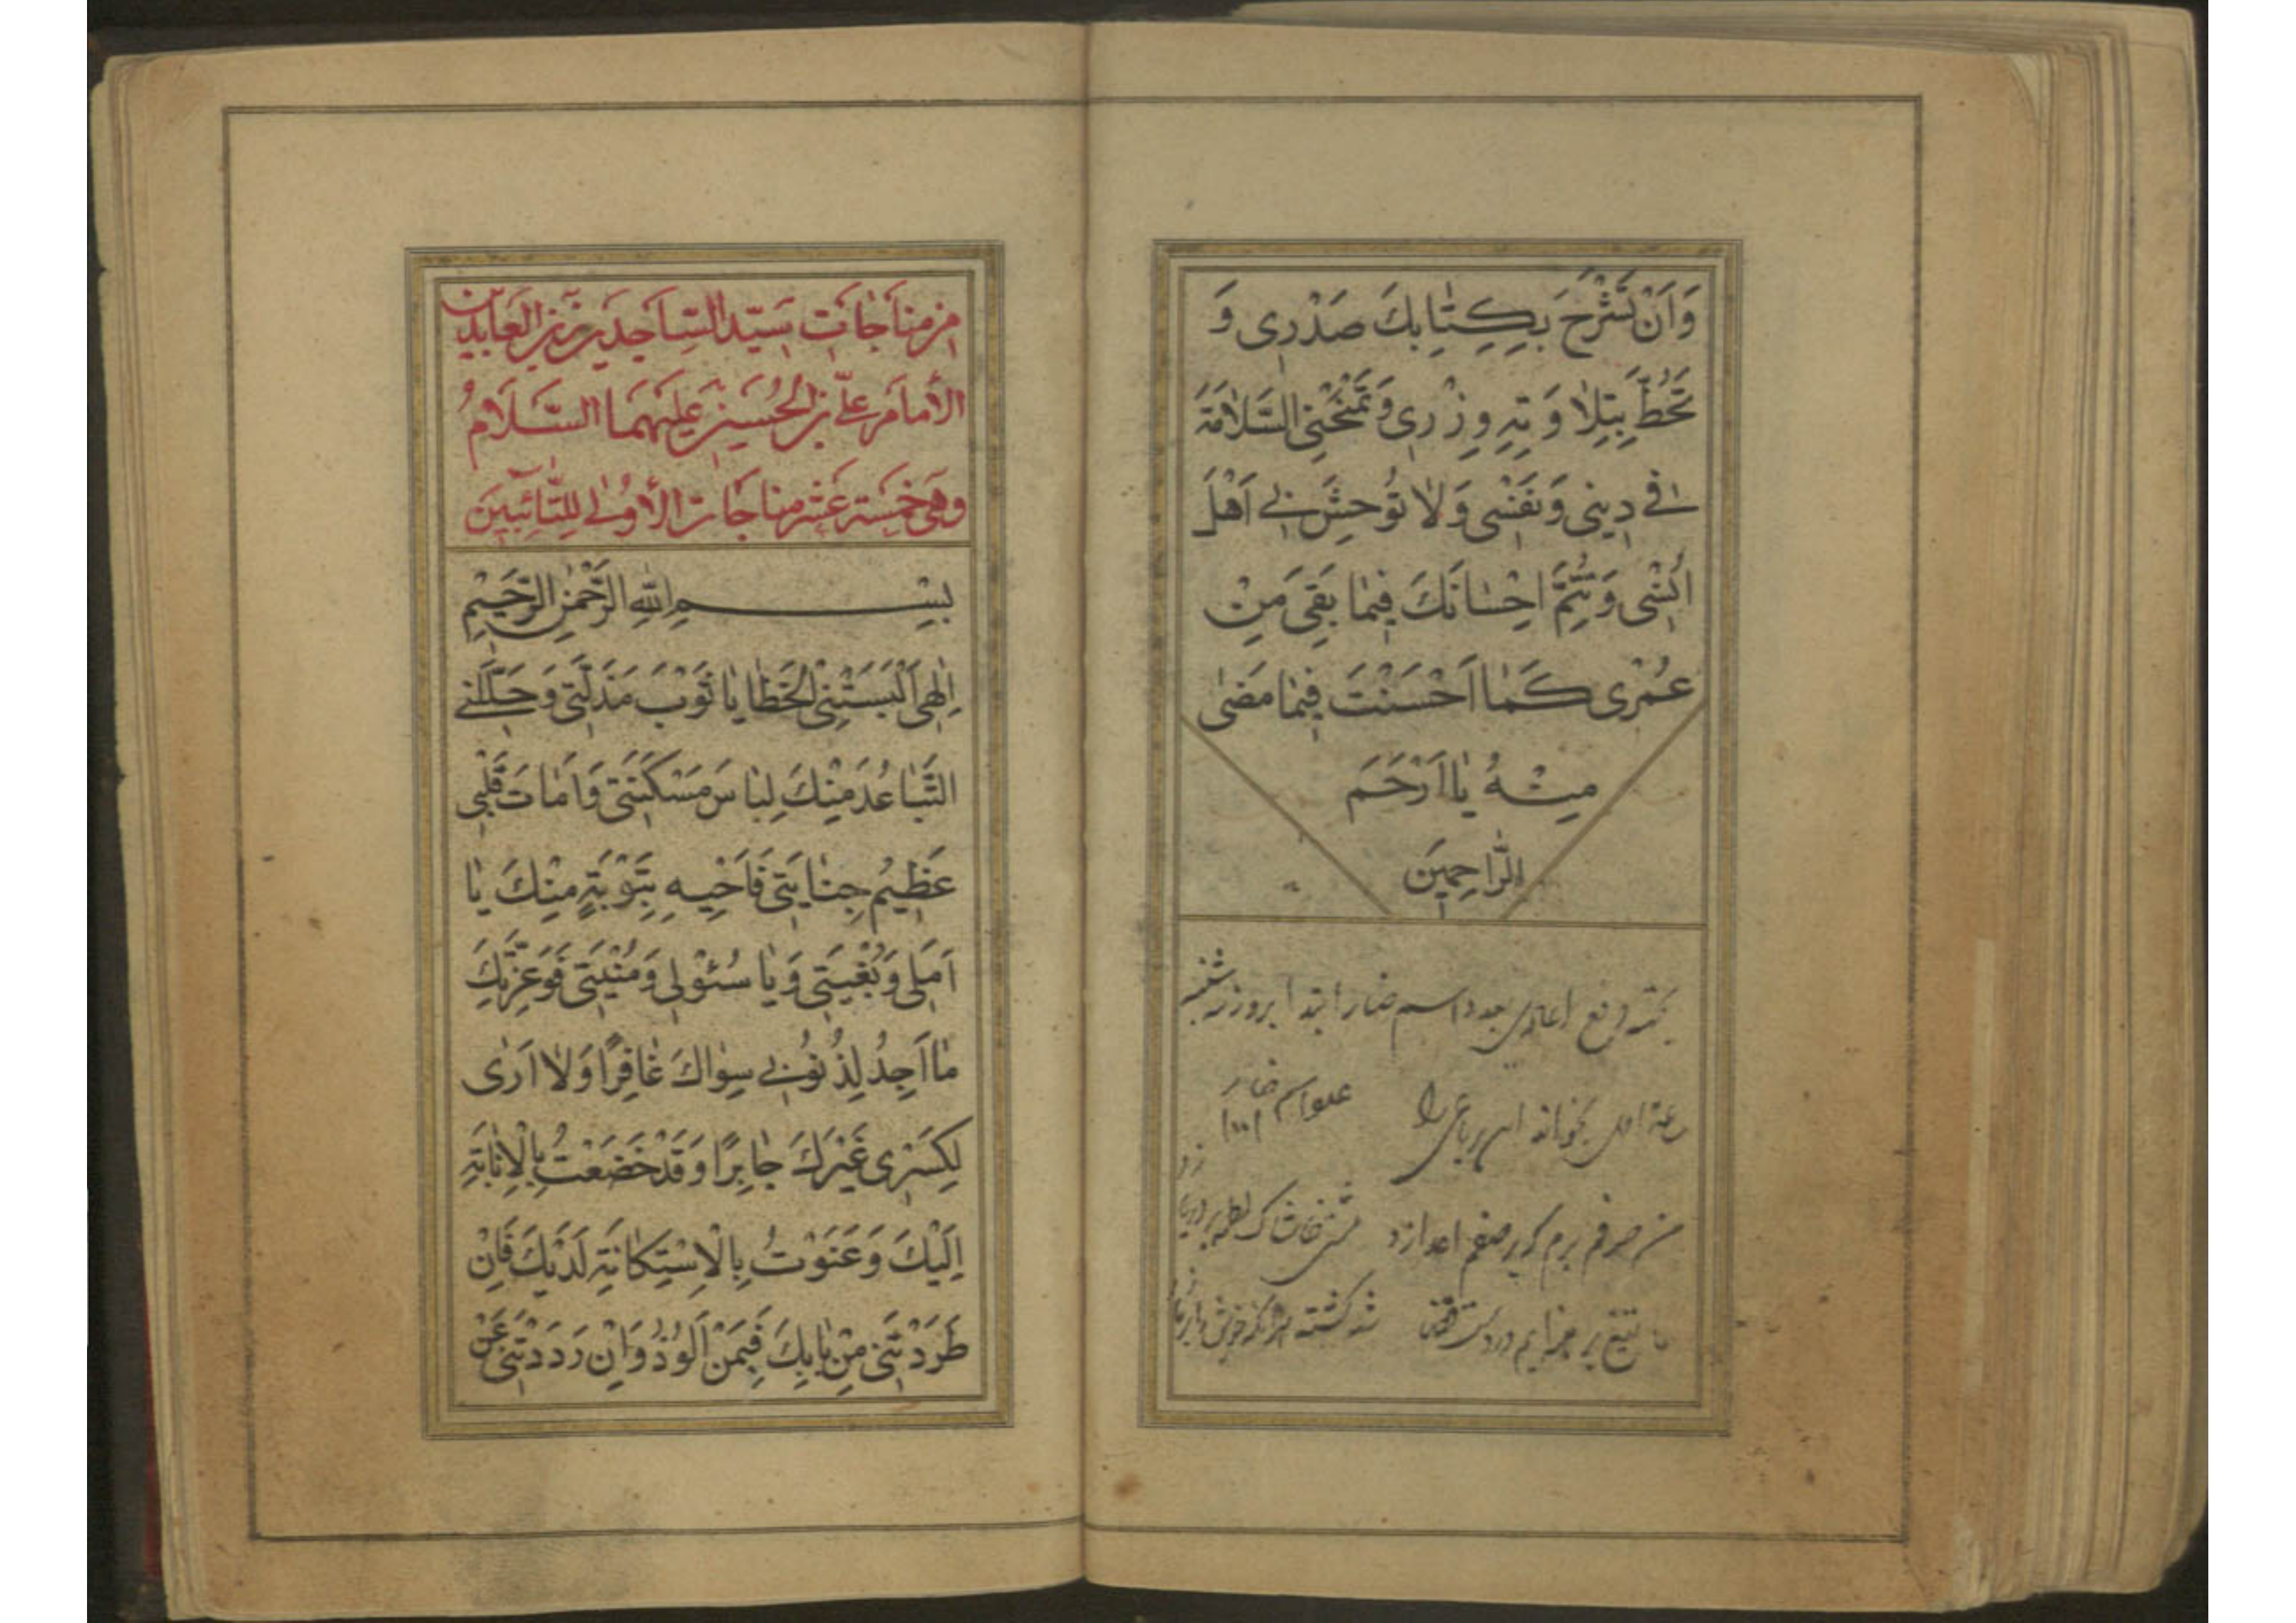 وَاَنْ تَشْرَحَ بِكِتٰابِكَ صَدْرٖى وَ
تَحُطَّ بِتِلاٰوَتِهٖ وِزْرٖى وَتَمْنَحَنِى السَّلاٰمَةَ
فٖى دٖينٖى وَنَفْسٖى وَلاٰ تُوحِشَ بٖى اَهْلَ
اُنْسٖى وَتُتِمَّ اِحْسٰانَكَ فٖيمٰا بَقِىَ مِنْ
عُمْرٖى كَمٰا اَحْسَنْتَ فٖيمٰا مَضٰى
مِنْهُ يٰا اَرْحَمَ
الرّٰاحِمٖينَ
دفع اعادى بعدد اسم ابتدا بروز شنبه
بخواند اين رباعى را
من صرفه برم كه بر صفم اعدا زد
ما تيغ برهنه‌ايم در دست قضا شد كشته هر آنكه خويش را بر ما زد
مِنْ مُنَاجَاتِ سَيِّدِ السَّاجِدِينَ زَيْنِ الْعَابِدِينَ
الْأَمَامِ عَلِيِّ بْنِ الْحُسَيْنِ عَلَيْهِمَا السَّلَامُ
وَهِيَ خَمْسَةَ عَشَرَ مُنَاجَات الْأُولٰى لِلتَّائِبِينَ
بِسْمِ اللّٰهِ الرَّحْمٰنِ الرَّحٖيمِ
اِلٰهٖى اَلْبَسَتْنِى الْخَطٰايٰا ثَوْبَ مَذَلَّتٖى وَجَلَّلَنٖى
التَّبٰاعُدُ مِنْكَ لِبٰاسَ مَسْكَنَتٖى وَاَمٰاتَ قَلْبٖى
عَظٖيمُ جِنٰايَتٖى فَاَحْيِهٖ بِتَوْبَةٍ مِنْكَ يٰا
اَمَلٖى وَبُغْيَتٖى وَيٰا سُئْوْلٖى وَمُنْيَتٖى فَوَعِزَّتِكَ
مٰا اَجِدُ لِذُنُوبٖى سِوٰاكَ غٰافِرًا وَلاٰ اَرٰى
لِكَسْرٖى غَيْرَكَ جٰابِرًا وَقَدْ خَضَعْتُ بِالْاِنٰابَةِ
اِلَيْكَ وَعَنَوْتُ بِالْاِسْتِكٰانَةِ لَدَيْكَ فَاِنْ
طَرَدْتَنٖى مِنْ بٰابِكَ فَبِمَنْ اَلُوذُ وَاِنْ رَدَدْتَنٖى عَنْ